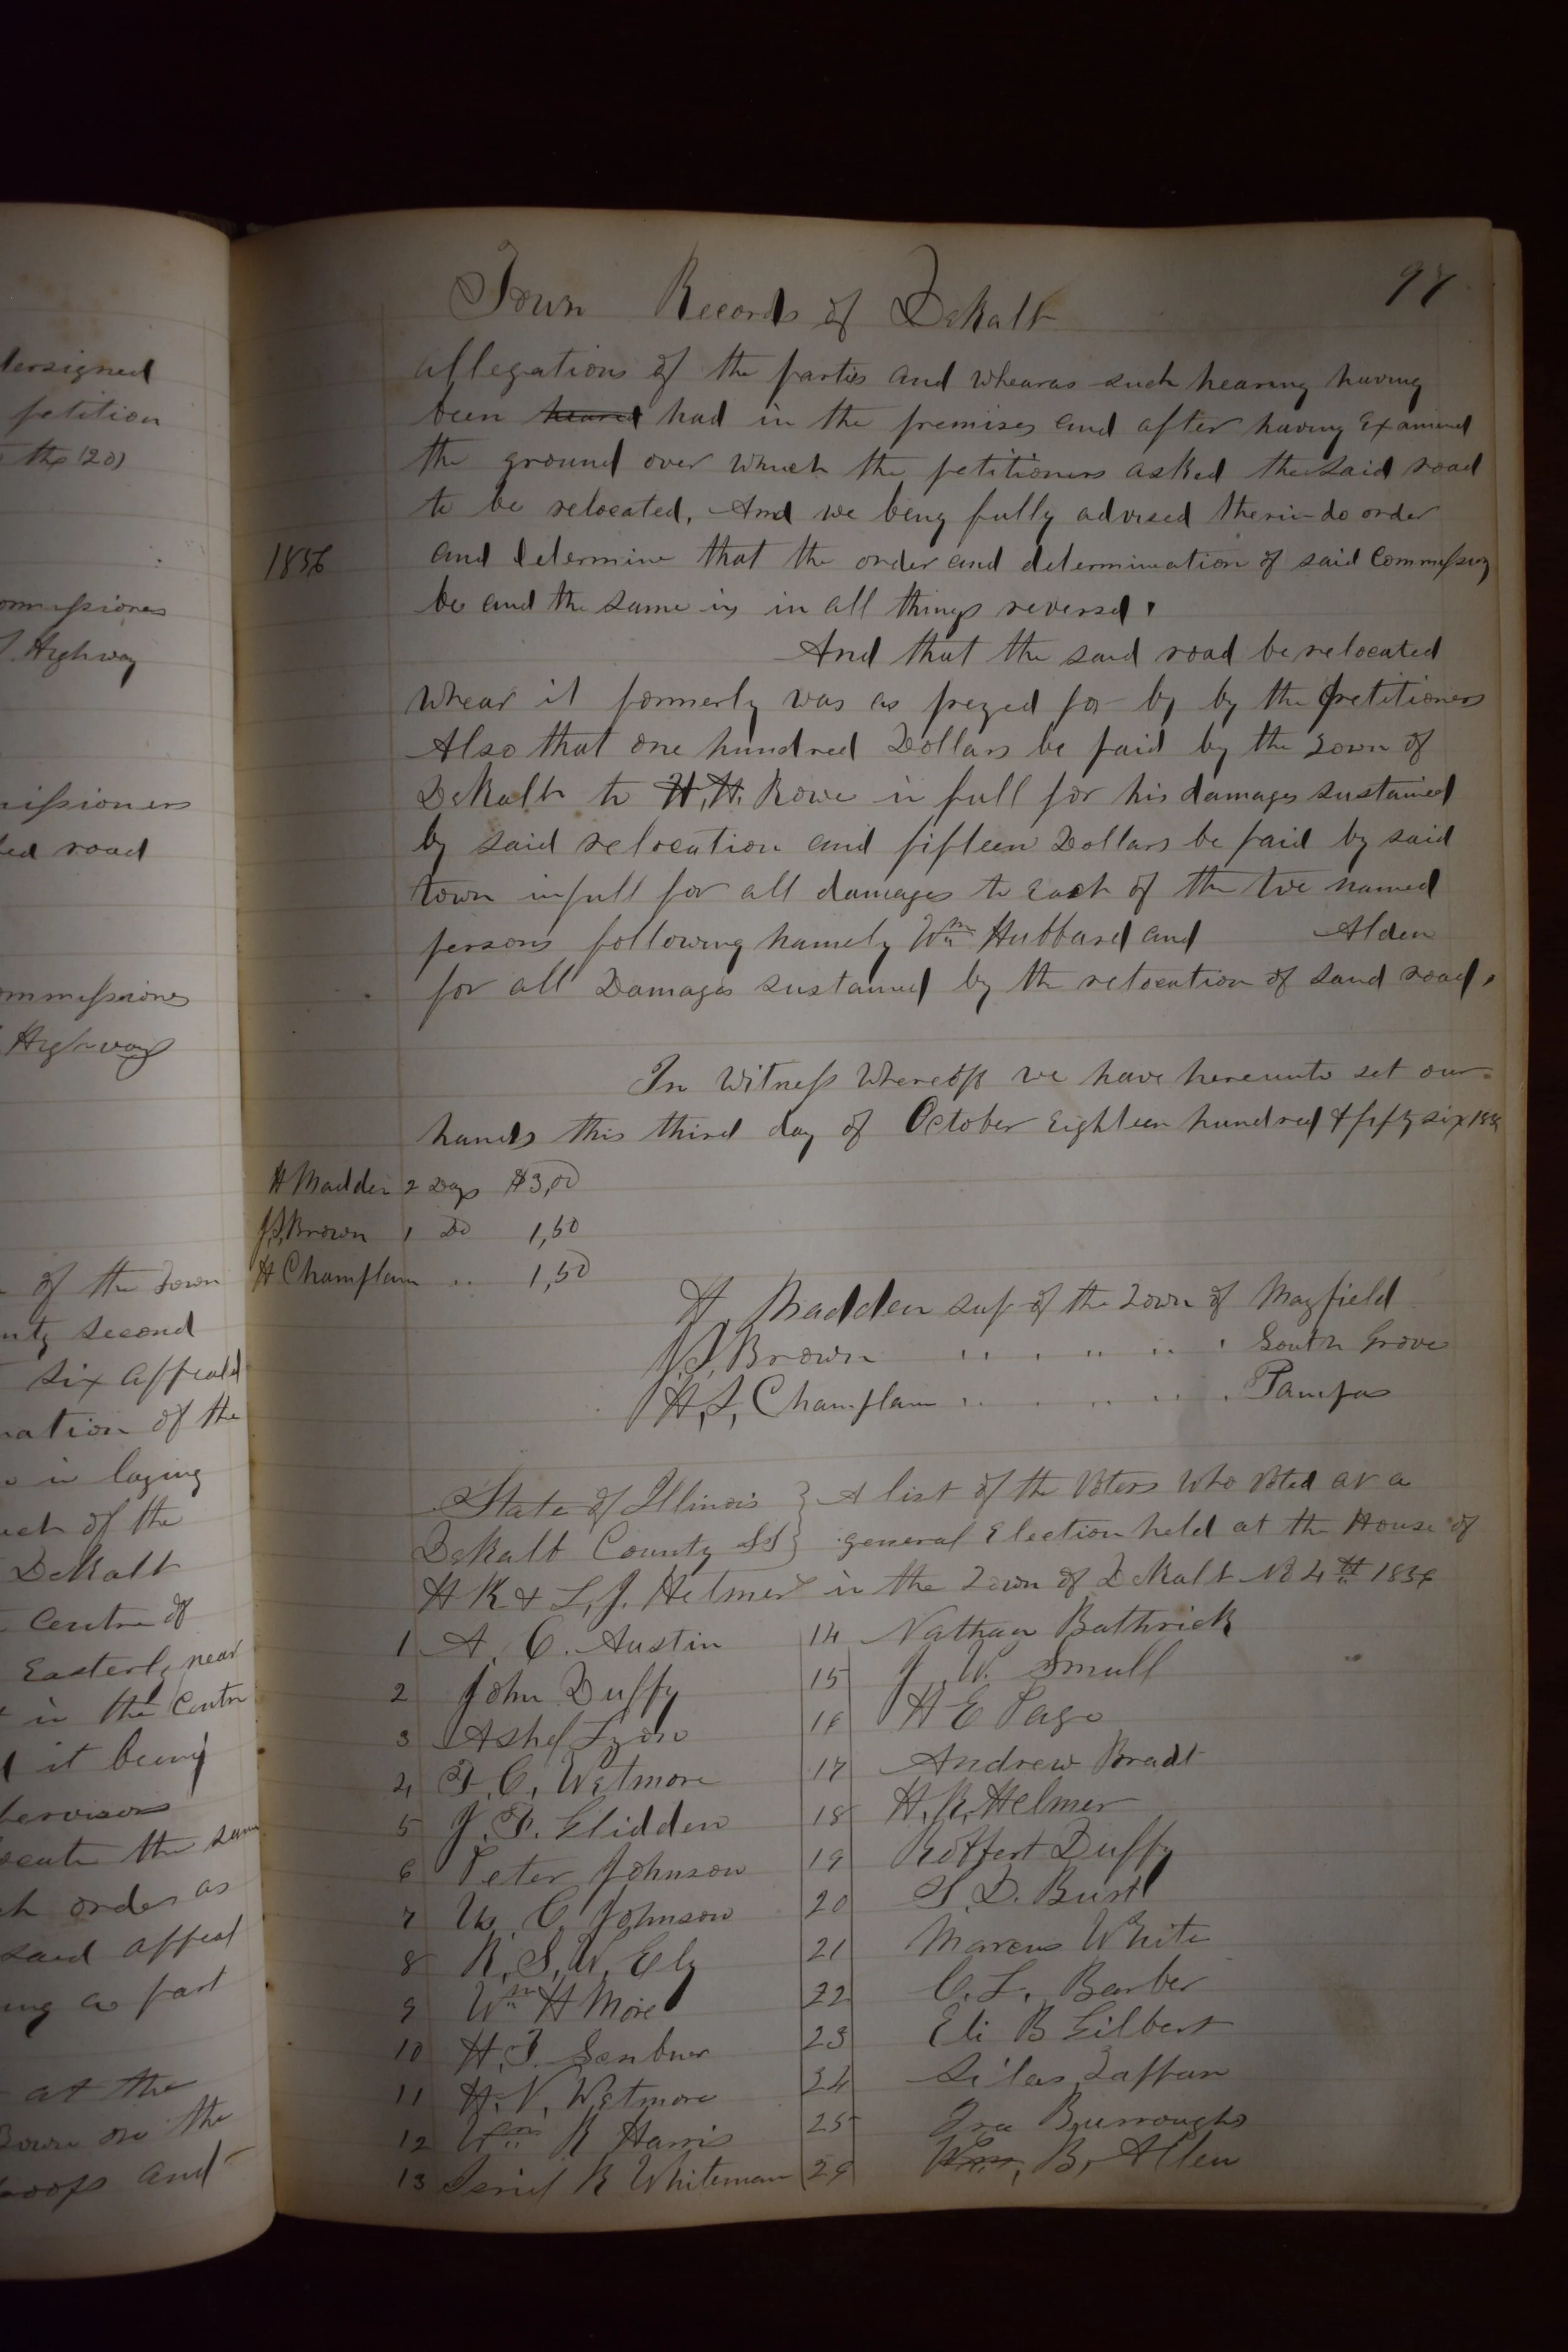 dersigned
petition
the (20)
ommissiones
Highway
missioners
ed road
ommissiones
Highway
of the Town
nty second
six appeald
nation of the
in laying
uch of the
DeKalb
Centre of
Easterly near
in the Centre
it being
pervisors
ocate the same
ch order as
said appeal
ing as part
at the
Town on the
and
Town Records of DeKalb
97
allegations of the parties and whearas such hearing having
been heared had in the premises and after having Examined
the ground over which the petitioners asked the said road
to be relocated, And we being fully advised therin do order
1856
and determine that the order and determination of said Commissiong
be and the same is in all things reversd.
And that the said road be relocated
Whear it formerly was as prezed for by by the petitioners
Also that one hundred Dollars be paid by the Town of
DeKalb to H, H. Rowe in full for his damages sustained
by said relocation and fifteen Dollars be paid by said
town in full for all damages to Each of the two named
persons following namely Wm Hubbard and Alden
for all Damages sustained by the relocation of said road,
In Witness Whereoff we have hereunto set our
hands this third day of October Eighteen hundred & fifty six 1856
H Madden 2 Days $3,00
J,S,Brown 1 Do 1,50
H Champlain " 1,50
H, Madden sup of the Town of Mayfield
J,S,Brown " " " " " South Grove
H,S, Champlain " " " " " Pampas
State of Illinois } A list of the Voters Who Voted at a
DeKalb County SS } general Election held at the House of
H R & L, J. Helmer in the Town of DeKalb No 4th 1856
1 A. C. Austin
2 John Duffy
3 Ashel Lyon
4 T, C, Wetmore
5 J. F. Glidden
6 Peter Johnson
7 W, C, Johnson
8 R, S, W, Ely
9 Wm H More
10 H, J.
11 H, V, Wetmore
12 Wm R Harris
13 R Whiteman
14 Nathan Bathrick
15 J. W. Small
16 H E Page
17 Andrew Bradt
18 H, R, Helmer
19 Robbert Duffy
20 S. D. Bust
21 Marcus White
22 C. L. Barber
23 Eli B Gilbert
24 Silas Taffan
25 Ira Burroughs
26 Wm, B, Allen